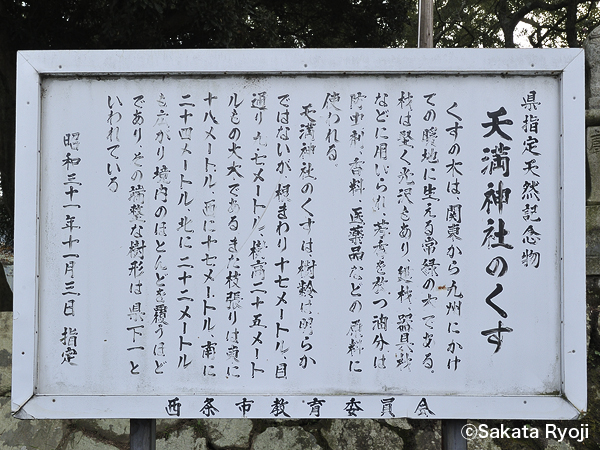 県指定天然記念物
天満神社のくす
くすの木は関東から九州にかけ
ての暖地に生える常緑の木である
材は堅く光沢もあり、建材、器具、
などに用いられ、芳香を放つ油分は
防虫剤、香料、医薬品などの原料に
使われる
天満神社のくすは樹齢は明らか
ではないが、根まわり十七メートル、目
通り九・七メートル、樹高二十五メート
ルもの大木であるまた枝張りは東に
十八メートル、西に十七メートル、南に
二十四メートル、北に二十二メートル
も広がり境内のほとんどを覆うほど
であり、その端整な樹形は県下一と
いわれている
昭和三十一年十一月三日 指定
西条市教育委員会
©Sakata Ryoji